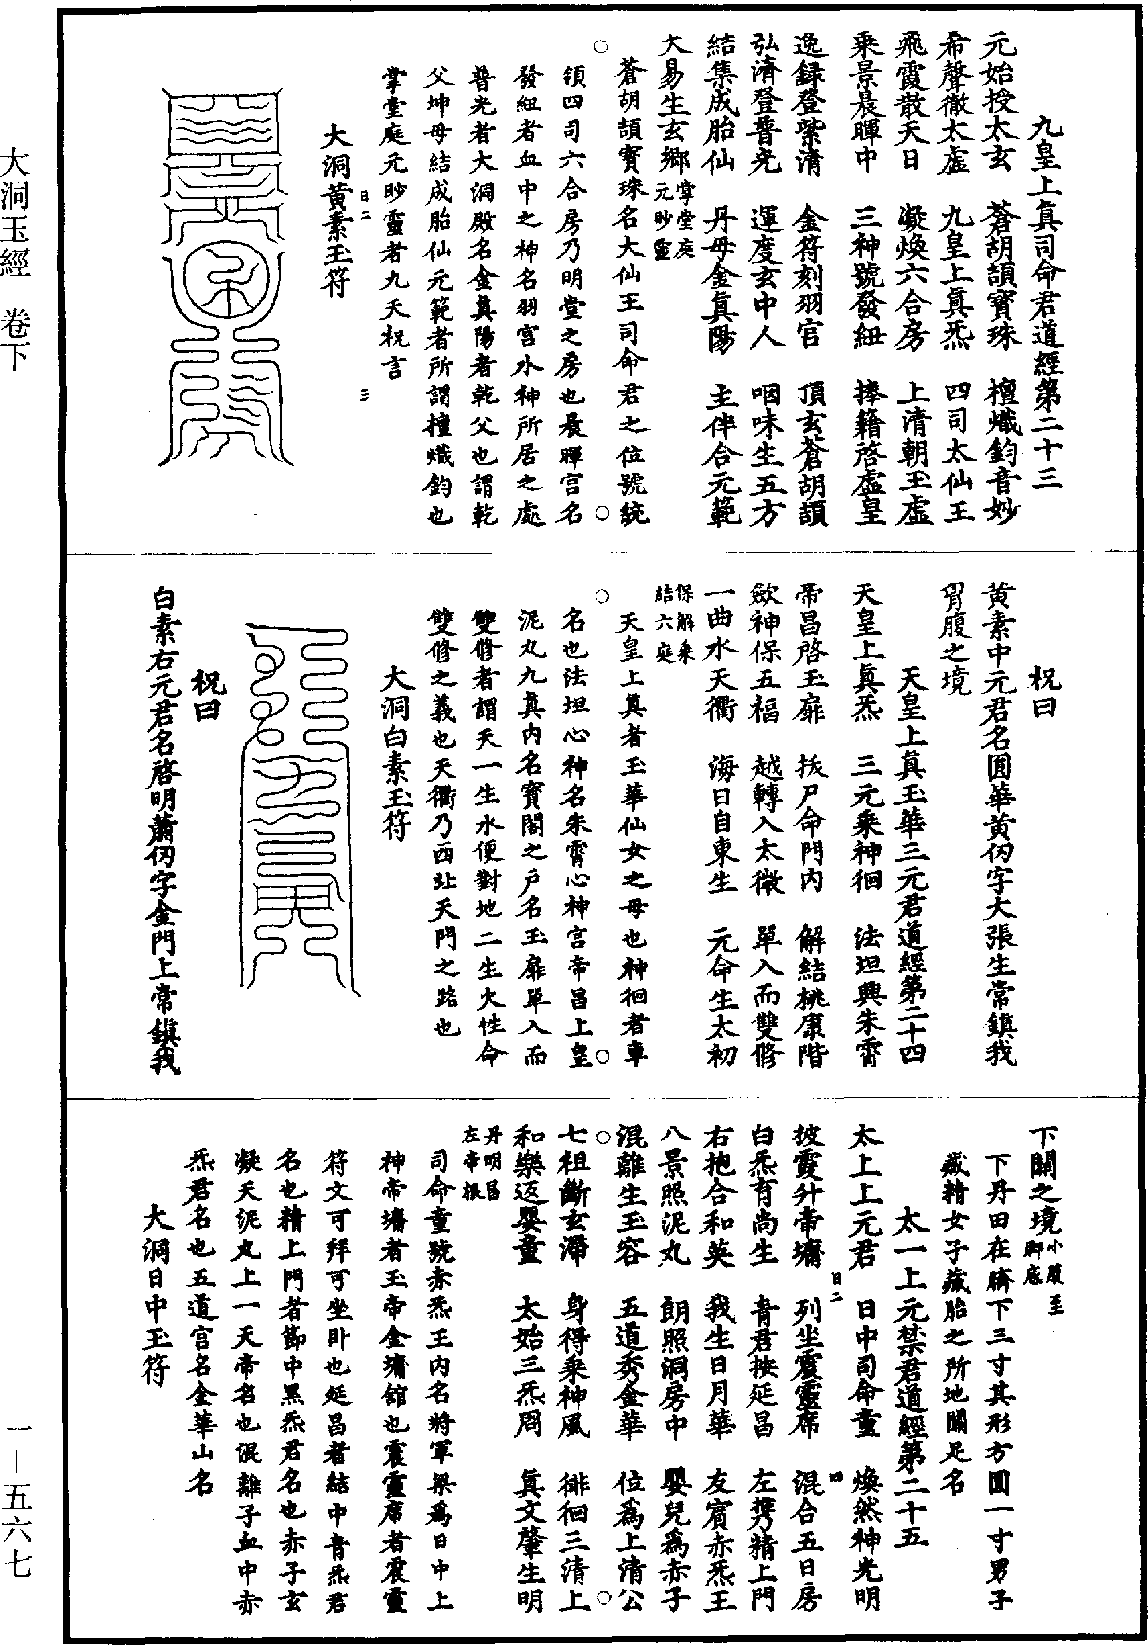 大洞玉經　卷下
一—五六七
九皇上真司命君道經第二十三
元始授太玄　蒼胡頡寶珠　檀熾鈞音妙
希聲徹太虛　九皇上真炁　四司太仙王
飛霞散天日　凝煥六合房　上清朝玉虛
乘景晨暉中　三神號發紐　捧籍啓虛皇
逸録登紫清　金符刻羽宮　頂玄蒼胡頡
弘濟登普光　運度玄中人　咽味生五方
結集成胎仙　丹母金真陽　主伴合元範
大易生玄鄉掌堂庭元眇靈
蒼胡頡寶珠名大仙王司命君之位號統
領四司六合房乃明堂之房也晨暉宫名
發紐者血中之神名羽宮水神所居之處
普光者大洞殿名金真陽者乾父也謂乾
父坤母結成胎仙元範者所謂檀熾鈞也
掌堂庭元眇靈者九天祝言
大洞黃素玉符
日二
三
祝曰
黃素中元君名圓華黃仂字大張生常鎮我
胃腹之境
天皇上真玉華三元君道經第二十四
天皇上真炁　三元乘神徊　法坦興朱霄
帝昌啓玉扉　拔尸命門內　解結桃康階
歛神保五福　越轉入太微　單入而雙修
一曲水天衢　海日自東生　元命生太初
保解乘結六庭
天皇上真者玉華仙女之母也神徊者車
名也法坦心神名朱霄心神宮帝昌上皇
泥丸九真內名寶閣之戶名玉扉單入而
雙修者謂天一生水便對地二生火性命
雙修之義也天衢乃西北天門之路也
大洞白素玉符
祝曰
白素右元君名啓明蕭仂字金門上常鎮我
下關之境小腹至脚底
下丹田在臍下三寸其形方圓一寸男子
藏精女子藏胎之所地關足名
太一上元禁君道經第二十五
太上上元君　日中司命童　煥然神光明
披霞升帝墉　列坐震靈席　混合五日房
白炁有尚生　青君按延昌　左攜精上門
右抱合和英　我生日月華　友賓赤炁王
八景照泥丸　朗照洞房中　嬰兒爲赤子
混離生玉容　五道秀金華　位爲上清公
七祖斷玄滯　身得乘神風　徘徊三清上
和樂返嬰童　太始三炁周　真文肇生明
丹明昌左帝根
日二
四
司命童號赤炁王內名將軍梁爲日中上
神帝墉者玉帝金墉舘也震靈席者震靈
符文可拜可坐卧也延昌者結中青炁君
名也精上門者節中黑炁君名也赤子玄
凝天泥丸上一天帝名也混離子血中赤
炁君名也五道宮名金華山名
大洞日中玉符